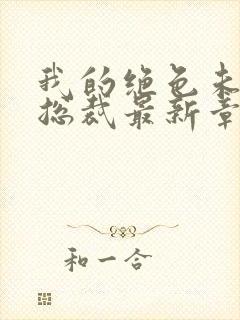 我的绝色未
总裁最新章
和一合